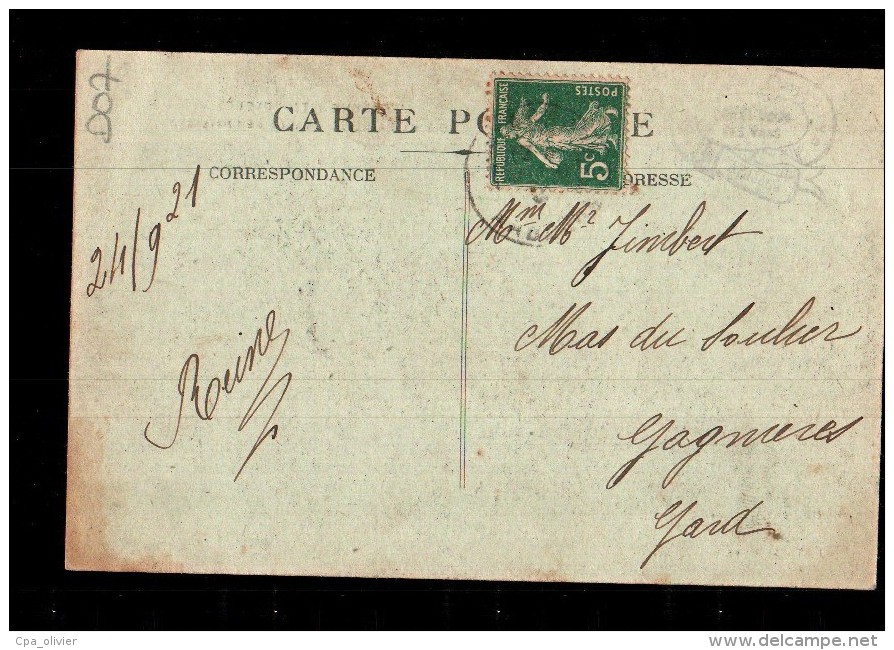 D07
CARTE PO E
CORRESPONDANCE
DRESSE
REPUBLIQUE FRANÇAISE
POSTES
5c
24/9 21
Reine
Mm Mr Jimbert
Mas du Soulier
Gagnières
Gard
Cpa_olivier
delcampe.net